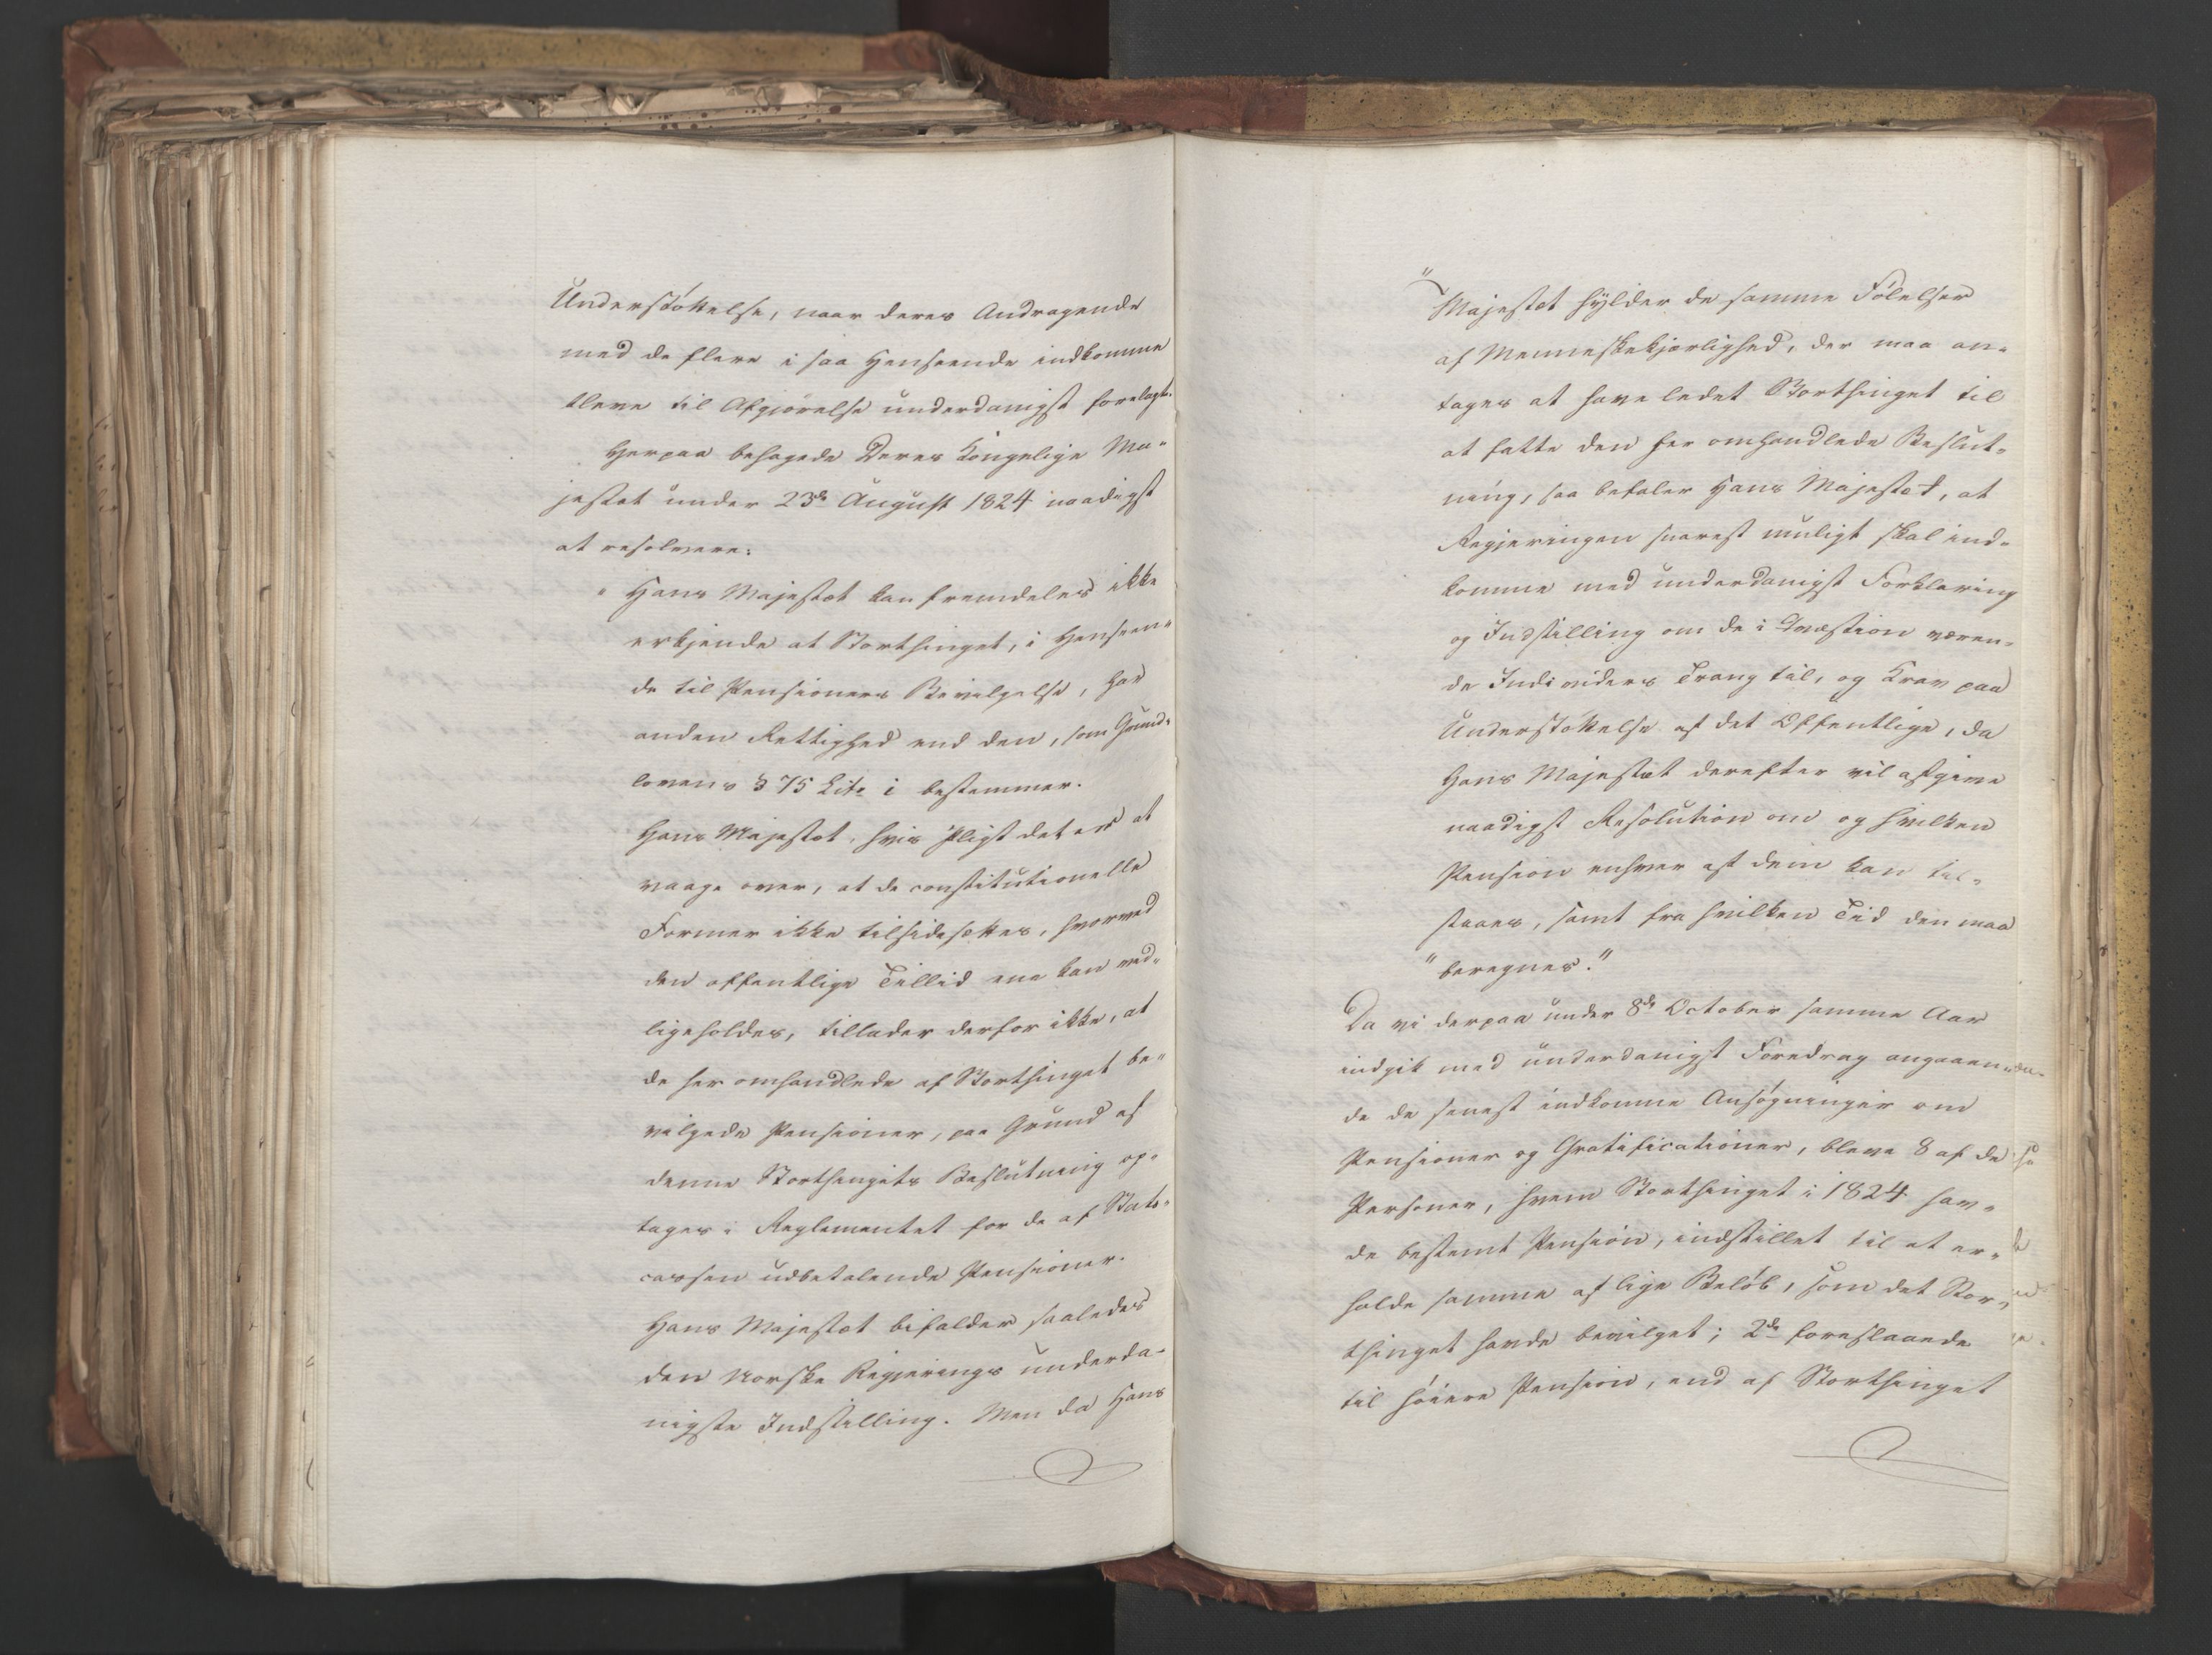 Understøttelse, naar deres Andragende
med de flere i saa Henseende indkomne
bleve til Afgjørelse underdanigst forelagte.
Herpaa behagede Deres Kongelige Ma-
jestæt under 23de August 1824 naadigst
at resolvere:
" Hans Majestæt kan fremdeles ikke
erkjende at Storthinget, i Henseen-
de til Pensioners Bevilgelse, har
anden Rettighed end den, som Grund-
lovens § 75 Litr i bestemmer.
Hans Majestæt, hvis Pligt det er at
vaage over, at de constitutionelle
Former ikke tilsidesættes, hvorved
den offentlige Tillid ene kan ved-
ligeholdes, tillader derfor ikke, at
de her omhandlede af Storthinget be-
vilgede Pensioner, paa Grund af
denne Storthingets Beslutning op-
tages i Reglementet for de af Stats-
cassen udbetalende Pensioner.
Hans Majestæt bifalder saaledes
den norske Regjerings underda-
nigste Indstilling. Men da Hans
" Majestæt hylder de samme Følelser
af Menneskekjærlighed, der maa an-
tages at have ledet Storthinget til
at fatte den her omhandlede Beslut-
ning, saa befaler Hans Majestæt, at
Regjeringen snarest muligt skal ind-
komme med underdanigst Forklaring
og Indstilling om de i Qvæstion væren-
de Individers Trang til, og Krav paa
Understøttelse af det Offentlige, da
Hans Majestæt derefter vil afgive
naadigst Resolution om og hvilken
Pension enhver af dem kan til-
staaes, samt fra hvilken Tid den maa
" beregnes."
Da vi derpaa under 8de October samme Aar
indgik med underdanigst Foredrag angaaen-
de de senest indkomne Ansøgninger om
Pensioner og Gratificationer, bleve 8 af de
Personer, hvem Storthinget i 1824 hav-
de bestemt Pension, indstillet til at er-
holde samme af lige Beløb, som det Stor-
thinget havde bevilget; 2de foreslaaede
til høiere Pension, end af Storthinget